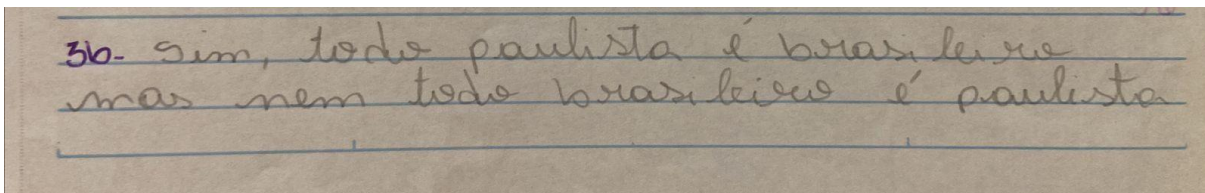 3b- Sim, todo paulista é brasileiro
mas nem todo brasileiro é paulista